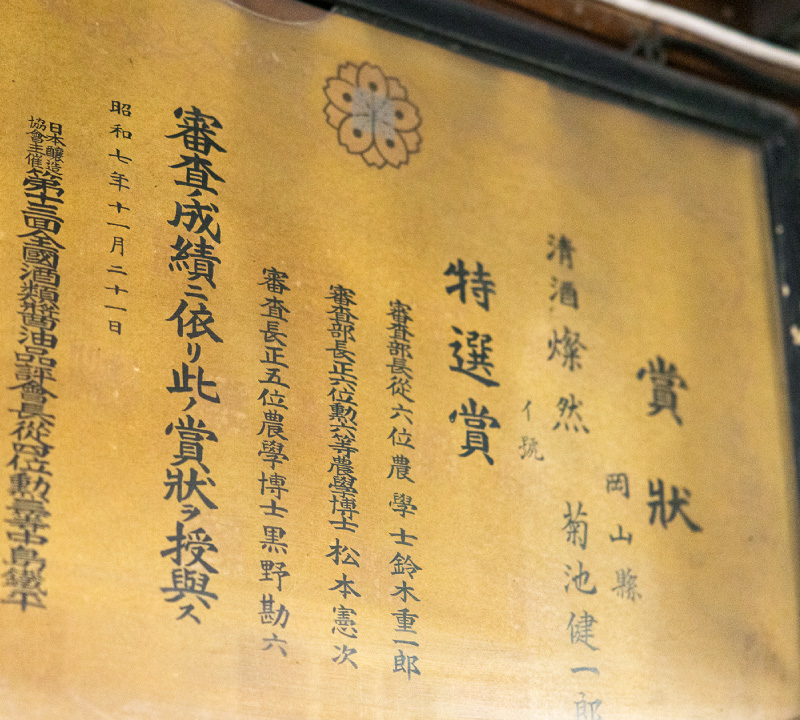 賞狀
岡山縣
清酒燦然
イ號
菊池健一郎
特選賞
審査部長從六位農學士鈴木重一郎
審査部長正六位勲六等農學博士松本憲次
審査長正五位農學博士黒野勘六
審査ノ成績ニ依リ此ノ賞狀ヲ授與ス
昭和七年十一月二十一日
日本醸造協會主催第十三回全國酒類醤油品評會長從四位勲三等中島鐵平